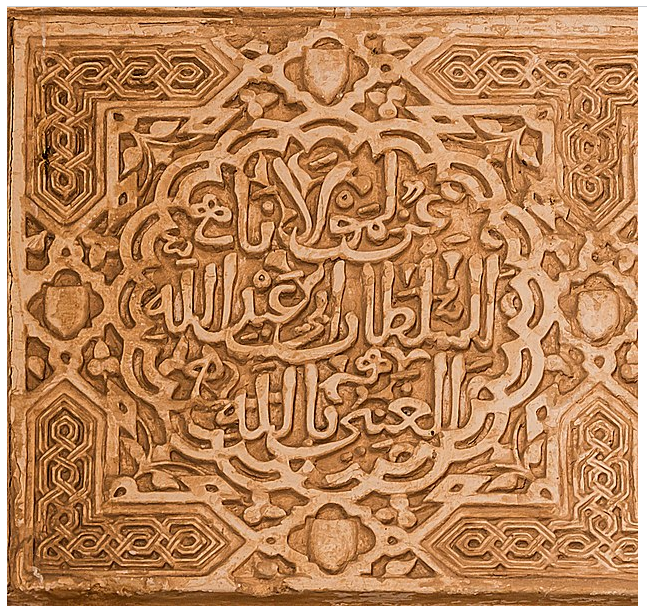 عز لمولانا
السلطان أبي عبد الله
الغني بالله